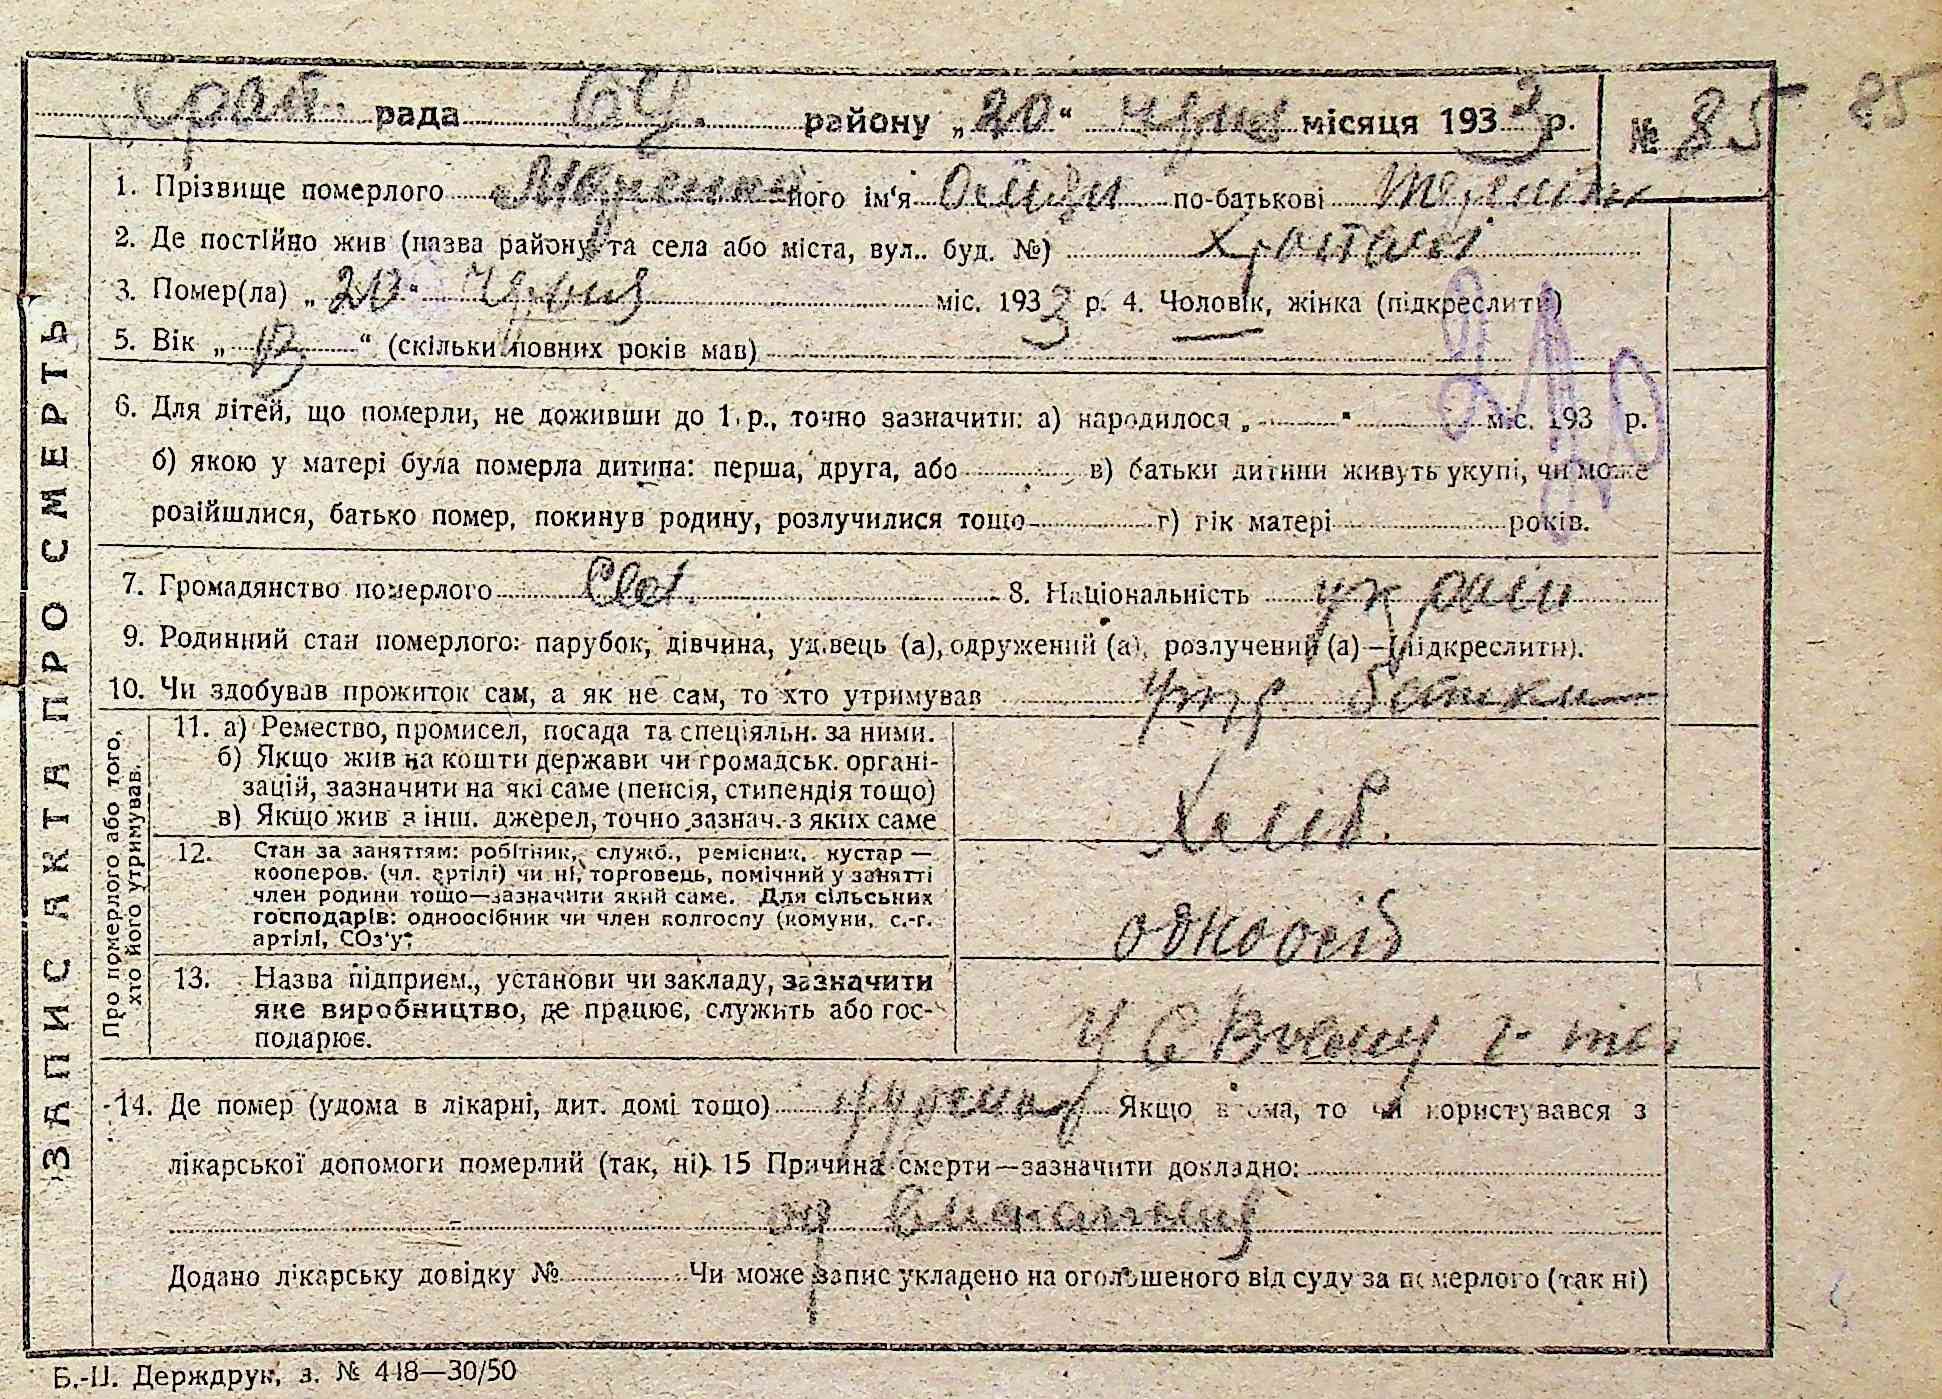 Храт. рада БЦ. району „20“ червня місяця 1933 р. № 85 85
1. Прізвище померлого його ім'я по-батькові
2. Де постійно жив (назва району та села або міста, вул.. буд. №)
3. Помер(ла) „20“ червня міс. 1933 р. 4. Чоловік, жінка (підкреслити)
5. Вік „13“ (скільки повних років мав)
6. Для дітей, що померли, не доживши до 1 р., точно зазначити: а) народилося „ “ міс. 193 р.
б) якою у матері була померла дитина: перша, друга, або в) батьки дитини живуть укупі, чи може
розійшлися, батько помер, покинув родину, розлучилися тощо г) рік матері років.
7. Громадянство померлого 8. Національність україн
9. Родинний стан померлого: парубок, дівчина, удівець (а), одружений (а), розлучений (а) — (підкреслити).
10. Чи здобував прожиток сам, а як не сам, то хто утримував утр. батьки
Про померлого або того, хто його утримував.
11. а) Ремество, промисел, посада та спеціяльн. за ними.
б) Якщо жив на кошти держави чи громадськ. органі-
зацій, зазначити на які саме (пенсія, стипендія тощо)
в) Якщо жив з інш. джерел, точно зазнач. з яких саме
Хліб.
12. Стан за заняттям: робітник, служб., ремісник, кустар —
кооперов. (чл. артілі) чи ні, торговець, помічний у занятті
член родини тощо—зазначити який саме. Для сільських
господарів: одноосібник чи член колгоспу (комуни, с.-г.
артілі, СОз'у;
одноосіб
13. Назва підприєм., установи чи закладу, зазначити
яке виробництво, де працює, служить або гос-
подарює.
У Своєму г-ті
14. Де помер (удома в лікарні, дит. домі тощо) Якщо вдома, то чи користувався з
лікарської допомоги померлий (так, ні). 15 Причина смерти—зазначити докладно:
од виснаження
Додано лікарську довідку № Чи може запис укладено на оголошеного від суду за померлого (так ні)
ЗАПИС АКТА ПРО СМЕРТЬ
Б.-Ц. Держдрук, з. № 448—30/50